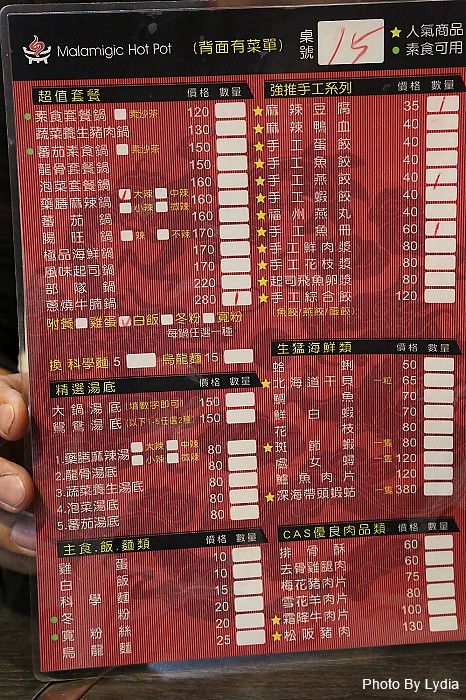 Malamigic Hot Pot (背面有菜單) 桌號 15 ★人氣商品
●素食可用
超值套餐 價格 數量
素食套餐鍋 素沙茶 120
蔬菜養生豬肉鍋 130
蕃茄素食鍋 素沙茶 150
龍骨套餐鍋 150
泡菜套餐鍋 160
藥膳麻辣鍋 大辣 中辣 小辣 微辣 160
蕃茄鍋 160
腸旺鍋 辣 不辣 170
極品海鮮鍋 170
風味起司鍋 170
部隊鍋 220
蔥燒牛腩鍋 280
附餐 雞蛋 白飯 冬粉 寬粉
每鍋任選一種
換 科學麵 5 烏龍麵 15
精選湯底 價格 數量
大鍋湯底 (填數字即可) 150
鴛鴦湯底 (以下1-5任選2種) 150
1.藥膳麻辣湯 大辣 中辣 小辣 微辣 80
2.龍骨湯底 80
3.蔬菜養生湯底 80
4.泡菜湯底 80
5.蕃茄湯底 80
主食.飯.麵類 價格 數量
雞蛋 10
白飯 10
科學麵 15
冬粉 20
寬粉絲 20
烏龍麵 25
強推手工系列 價格 數量
麻辣豆腐 35
麻辣鴨血 40
手工蛋餃 40
手工魚餃 40
手工燕餃 40
手工蝦餃 40
福州燕丸 40
手工魚冊 60
手工鮮肉漿 80
手工花枝漿 80
起司飛魚卵漿 80
手工綜合餃 120
(魚餃/燕餃/蛋餃)
生猛海鮮類 價格 數量
蛤蜊 50
北海道干貝 一粒 65
鯛魚 70
鮮白蝦 70
花枝 80
斑節蝦 一隻 80
處女蟳 一隻 120
鱸魚肉片 120
深海帶頭蝦蛄 一隻 380
CAS優良肉品類 價格 數量
排骨酥 60
去骨雞腿肉 60
梅花豬肉片 75
雪花羊肉片 80
霜降牛肉片 100
松阪豬肉 130
Photo By Lydia